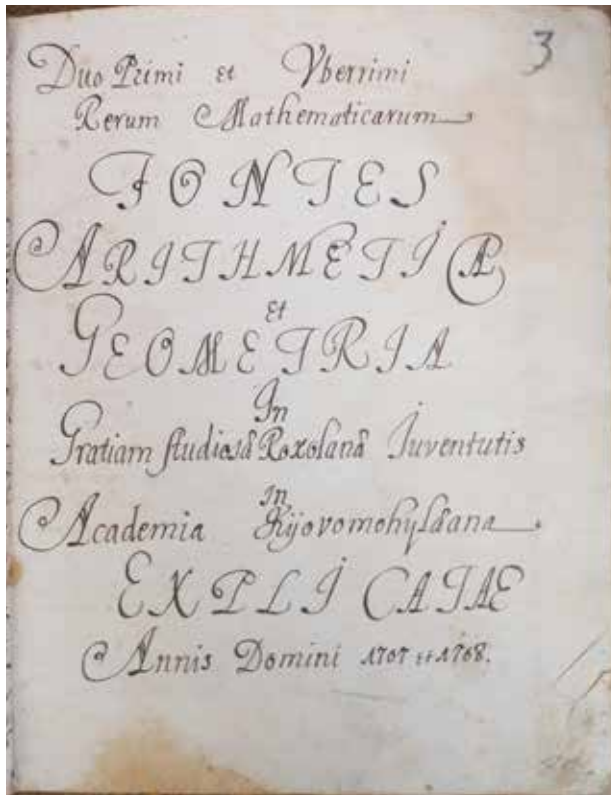 3
Duo Primi et Vberrimi
Rerum Mathematicarum
FONTES
ARITHMETICA
et
GEOMETRIA
In
Gratiam studiosæ Roxolanæ Iuventutis
In
Academia Kijovomohylæana
EXPLICATAE
Annis Domini 1707 et 1708.